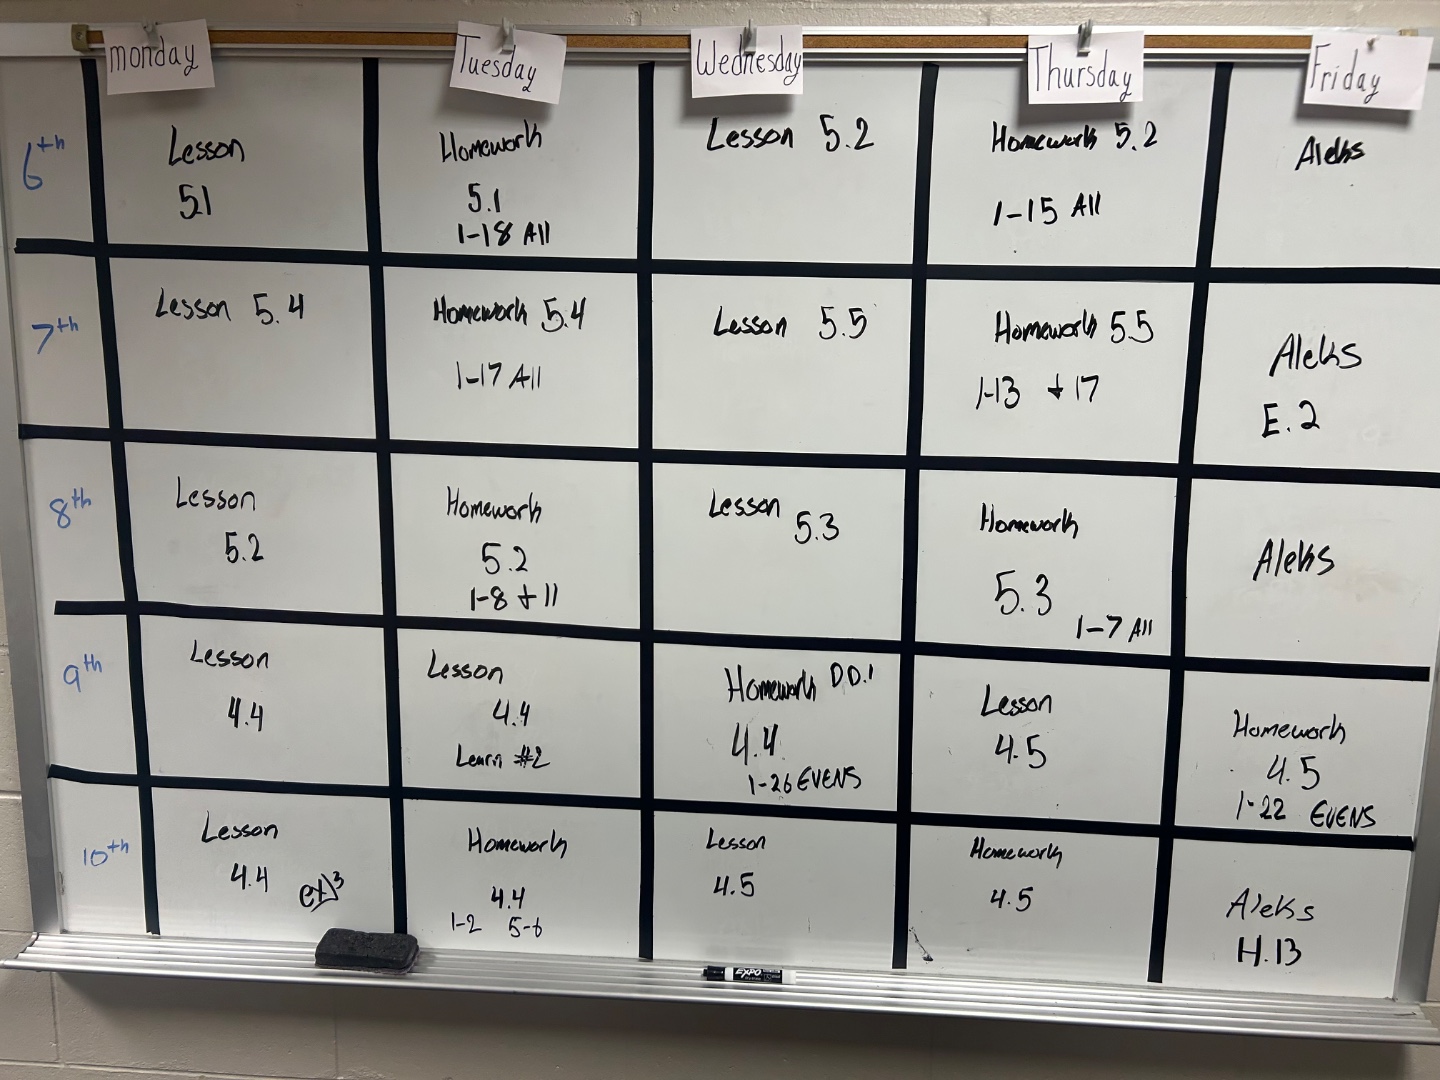 monday
Tuesday
Wednesday
Thursday
Friday
6th
Lesson
5.1
Homework
5.1
1-18 All
Lesson 5.2
Homework 5.2
1-15 All
Aleks
7th
Lesson 5.4
Homework 5.4
1-17 All
Lesson 5.5
Homework 5.5
1-13 + 17
Aleks
E.2
8th
Lesson
5.2
Homework
5.2
1-8 + 11
Lesson
5.3
Homework
5.3
1-7 All
Aleks
9th
Lesson
4.4
Lesson
4.4
Learn #2
Homework D.D.1
4.4
1-26 EVENS
Lesson
4.5
Homework
4.5
1-22 EVENS
10th
Lesson
4.4
Homework
4.4
1-2 5-6
Lesson
4.5
Homework
4.5
Aleks
H.13
EXPO